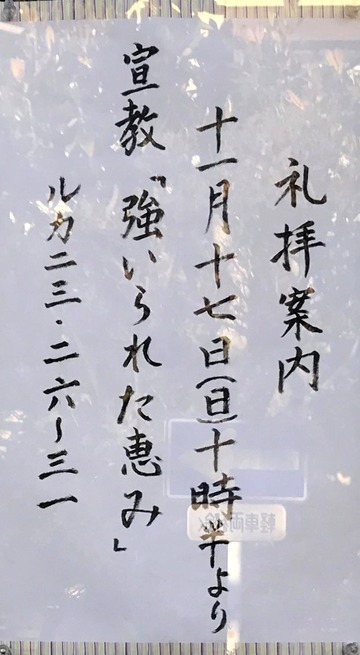 礼拝案内
十一月十七日(日)十時半より
宣教「強いられた恵み」
ルカ二三・二六~三一